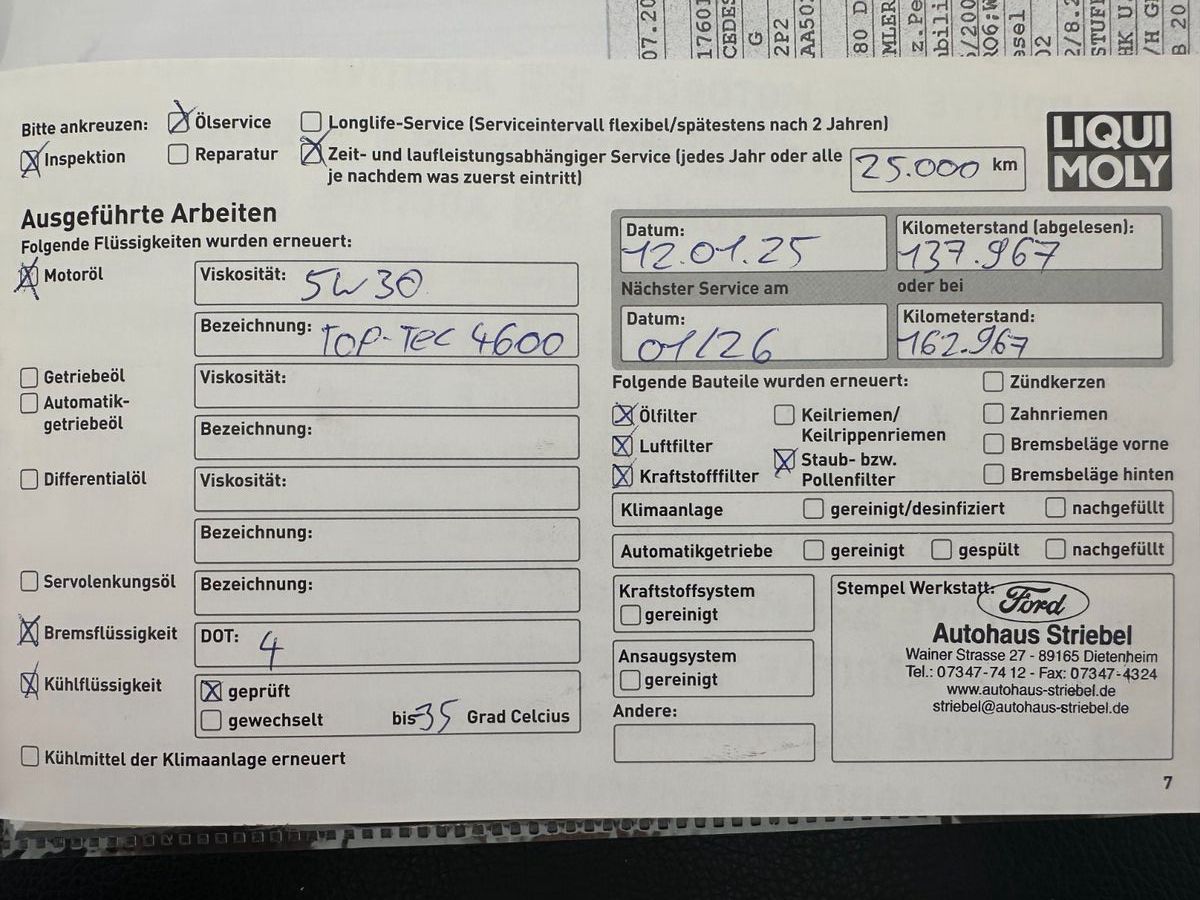 07.20
17601
CEDES
G
2P2
80 D
MLER
z.Pe
esel
02
STUFF
HK U
B 20
Bitte ankreuzen:
Ölservice
Longlife-Service (Serviceintervall flexibel/spätestens nach 2 Jahren)
Inspektion
Reparatur
Zeit- und laufleistungsabhängiger Service (jedes Jahr oder alle 25.000 km
je nachdem was zuerst eintritt)
LIQUI
MOLY
Ausgeführte Arbeiten
Folgende Flüssigkeiten wurden erneuert:
Motoröl
Viskosität: 5W30
Bezeichnung: TOP-TEC 4600
Getriebeöl
Automatik-
getriebeöl
Viskosität:
Bezeichnung:
Differentialöl
Viskosität:
Bezeichnung:
Servolenkungsöl
Bezeichnung:
Bremsflüssigkeit
DOT: 4
Kühlflüssigkeit
geprüft
gewechselt
bis -35 Grad Celcius
Kühlmittel der Klimaanlage erneuert
Datum:
12.01.25
Kilometerstand (abgelesen):
137.967
Nächster Service am
oder bei
Datum:
01/26
Kilometerstand:
162.967
Folgende Bauteile wurden erneuert:
Ölfilter
Luftfilter
Kraftstofffilter
Keilriemen/
Keilrippenriemen
Staub- bzw.
Pollenfilter
Zündkerzen
Zahnriemen
Bremsbeläge vorne
Bremsbeläge hinten
Klimaanlage
gereinigt/desinfiziert
nachgefüllt
Automatikgetriebe
gereinigt
gespült
nachgefüllt
Kraftstoffsystem
gereinigt
Ansaugsystem
gereinigt
Andere:
Stempel Werkstatt:
Ford
Autohaus Striebel
Wainer Strasse 27 - 89165 Dietenheim
Tel.: 07347-74 12 - Fax: 07347-4324
www.autohaus-striebel.de
striebel@autohaus-striebel.de
7